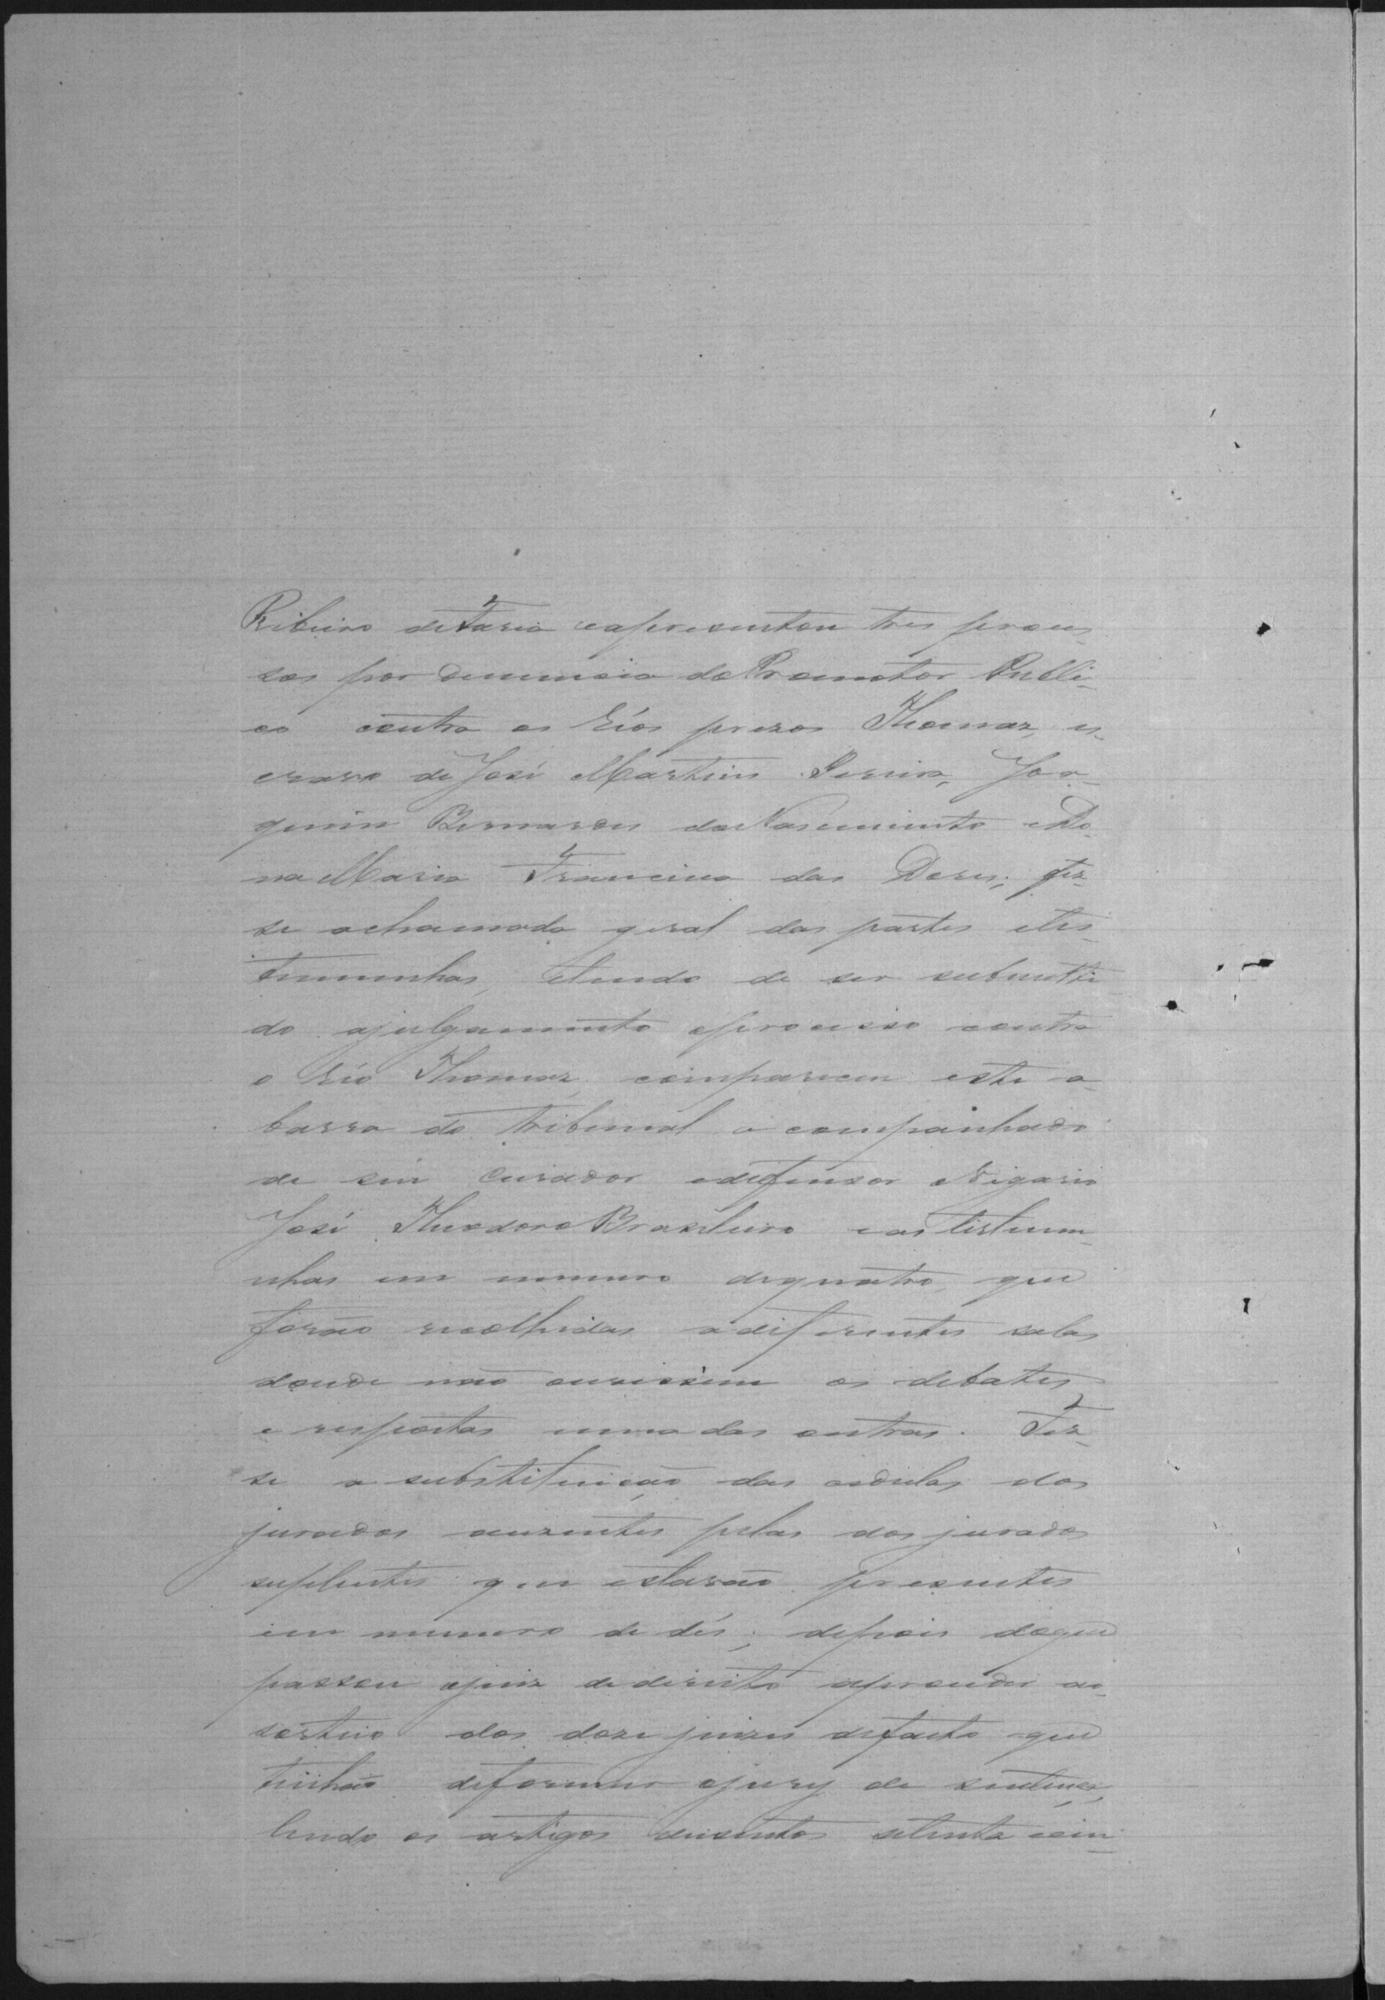 Ribeiro de Faria e apresentou tres proces-
sos por denuncia do Promotor Publi-
co contra os Réos prezos Thomaz, es-
cravo de José Martins Pereira, Joa-
quim Bernardes do Nascimento e Do-
na Maria Francina das Dores; fez-
se a chamada geral das partes e tes-
temunhas, e tendo de ser submetti-
do a julgamento o processo contra
o Réo Thomaz, compareceu este a
barra do tribunal acompanhado
de seu curador e defensor o Vigario
José Theodoro Brasileiro e as testemu-
nhas em numero de quatro, que
forão recolhidas a diferentes salas
donde não ouvissem os debates
e respostas umas das outras. Fez-
se a substituição das cedulas dos
jurados auzentes pelas dos jurados
suplentes que estavão presentes
em numero de dés; depois do que
passou o juiz de direito a proceder ao
sorteio dos doze juizes de facto que
tinhão de formar o jury de sentença,
lendo os artigos duzentos setenta e cin-